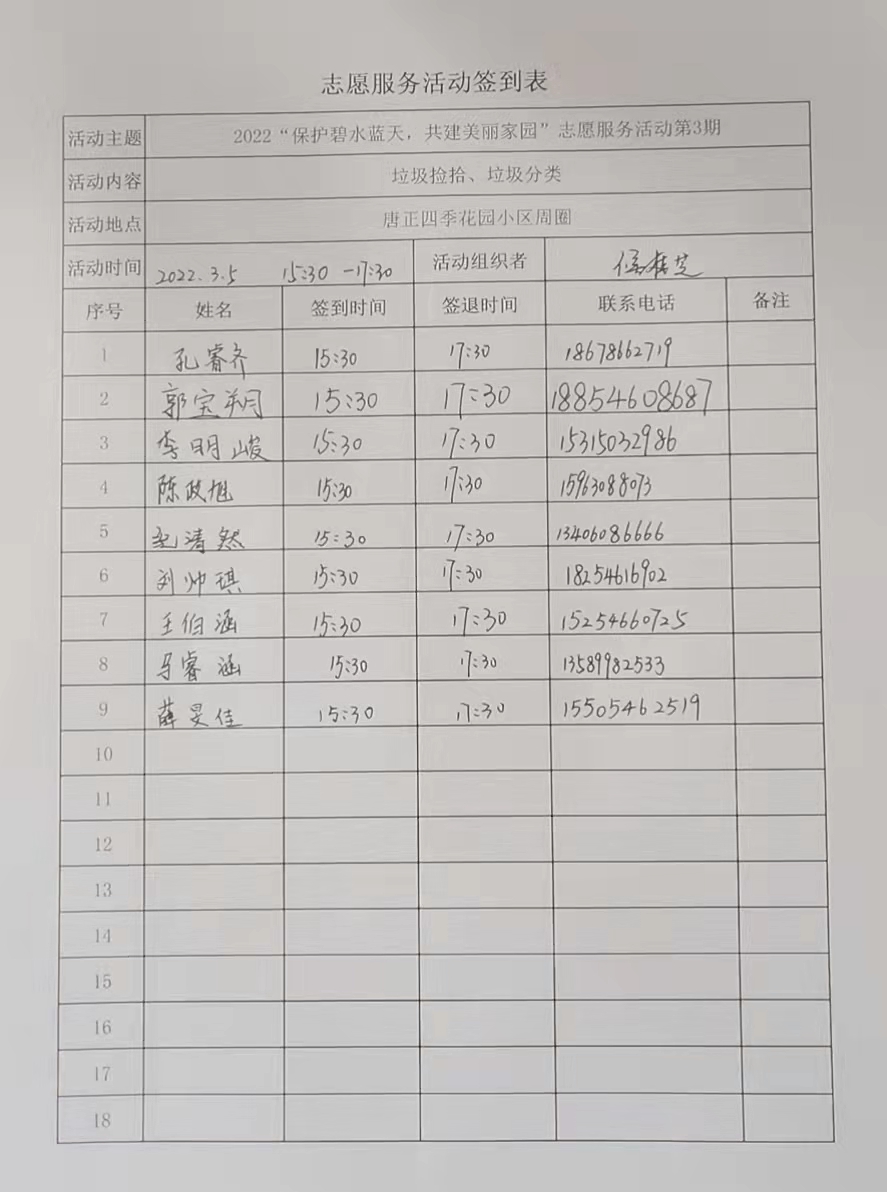 志愿服务活动签到表
活动主题 2022“保护碧水蓝天，共建美丽家园”志愿服务活动第3期
活动内容 垃圾捡拾、垃圾分类
活动地点 唐正四季花园小区周圈
活动时间 2022.3.5 15:30-17:30 活动组织者
序号 姓名 签到时间 签退时间 联系电话 备注
1 孔睿齐 15:30 17:30 18678662719
2 郭宝翔 15:30 17:30 18854608687
3 李明峻 15:30 17:30 15315032986
4 陈政旭 15:30 17:30 15963088073
5 清然 15:30 17:30 13406086666
6 刘帅琪 15:30 17:30 18254616902
7 王伯涵 15:30 17:30 15254660725
8 马睿涵 15:30 17:30 13589982533
9 薛旻佳 15:30 17:30 15505462519
10
11
12
13
14
15
16
17
18